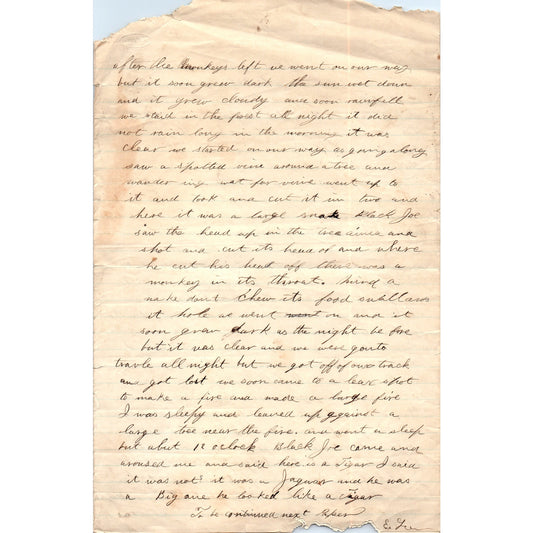 after the monkeys left we went on our way
but it soon grew dark the sun wet down
and it grew cloudy and soon rainfell
we staid in the forst all night it did
not rain long in the morning it was
clear we started on our way as going along
saw a spotted vine around a tree and
wander ing wat for vine went up to
it and took and cut it in two and
here it was a large snake Black Joe
saw the head up in the tree and
shot and cut its head of and where
he cut his head off there was a
monkey in its throat.
nake dont Chew its food swallows
it hole as went went on and it
soon grew dark as the night be fore
but it was clear and we were gonto
travle all night but we got off of our track
and got lost we soon came to a lear spot
to make a fire and made a large fire
I was sleepy and leaned up against a
large tree near the fire. and went a sleep
but abut 12 oclock Black Joe came and
aroused me and said here is a Tigar I said
it was not! it was a Jaguar and he was
a Big one he looked like a Tigar
To be continued next
E.